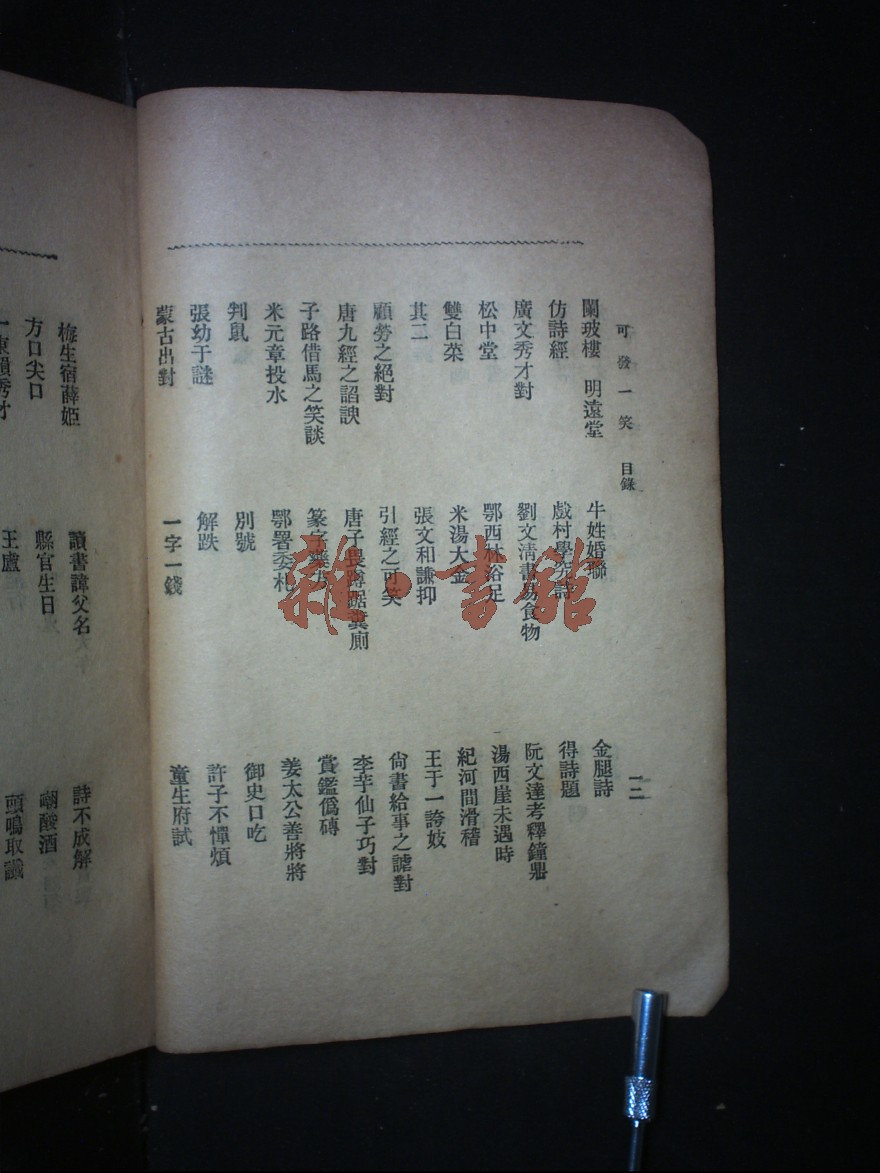 可發一笑 目錄 一二
闌玻樓 明遠堂 牛姓婚聯 金腿詩
仿詩經 戲村學究詩 得詩題
廣文秀才對 劉文淸書易食物 阮文達考釋鐘鼎
松中堂 鄂西林浴足 湯西崖未遇時
雙白菜 米湯大金 紀河間滑稽
其二 張文和謙抑 王于一誇妓
顧勞之絕對 引經之可笑 尙書給事之謔對
唐九經之詔諛 唐子畏蹲踞糞廁 李芋仙子巧對
子路借馬之笑談 篆字藥方 賞鑑僞磚
米元章投水 鄂署委札 姜太公善將將
判鼠 別號 御史口吃
張幼于謎 解跌 許子不憚煩
蒙古出對 一字一錢 童生府試
梅生宿薛姬 讀書諱父名 詩不成解
方口尖口 縣官生日 嘲酸酒
一東韻秀才 王盧 頭鳴取讖
雜·書館